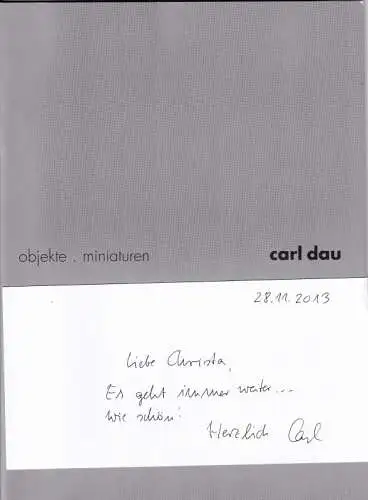 objekte . miniaturen carl dau
28.11.2013
Liebe Christa,
Es geht immer weiter...
wie schön!
Herzlich Carl